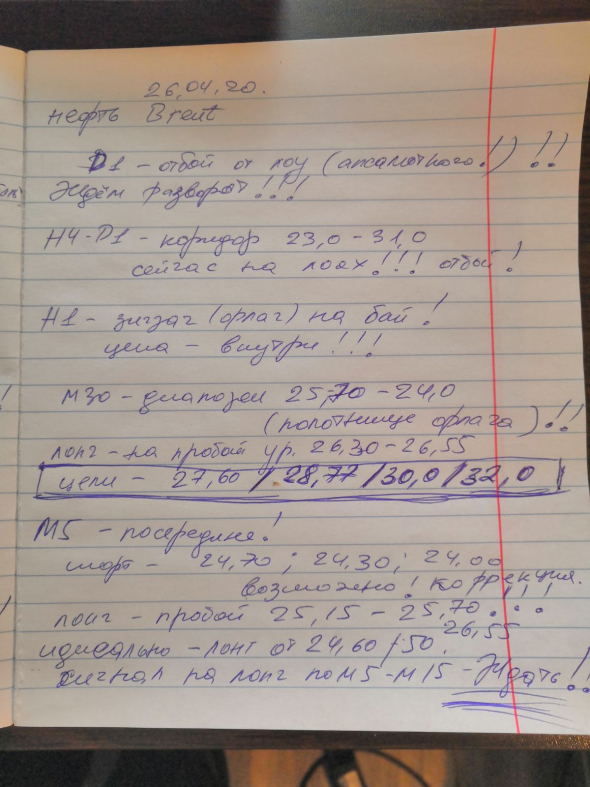 26,04,20.
нефть Brent
D1 - отбой от лоу (апсолютного!) !!
Ждём разворот!!!
H4-D1 - коридор 23,0 - 31,0
сейчас на лоях!!! отбой!
H1 - зигзаг (флаг) на бай!
цена - внутри!!!
M30 - диапозон 25,70 - 24,0
(полотнище флага)!!
лонг - на пробой ур. 26,30 - 26,55
цели - 27,60 / 28,77 / 30,0 / 32,0
M5 - посередине!
шорт - 24,70 ; 24,30 ; 24,00
возможно! коррекция.
лонг - пробой 25,15 - 25,70!!!
26,55
идеально - лонг от 24,60 / -50.
сигнал на лонг по M5-M15 - Ждать!!